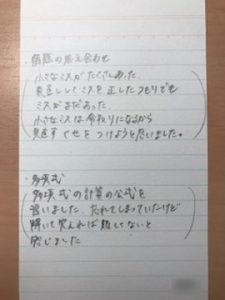 ・宿題の答え合わせ
小さなミスがたくさんあった
見直ししてミスを正したつもりでも
ミスがまだあった
小さなミスは命取りになるから
見直すくせをつけようと思いました。
・多項式
多項式の計算の公式を
習いました 忘れてしまっていたけど
解いて覚えれば難しくないと
感じました